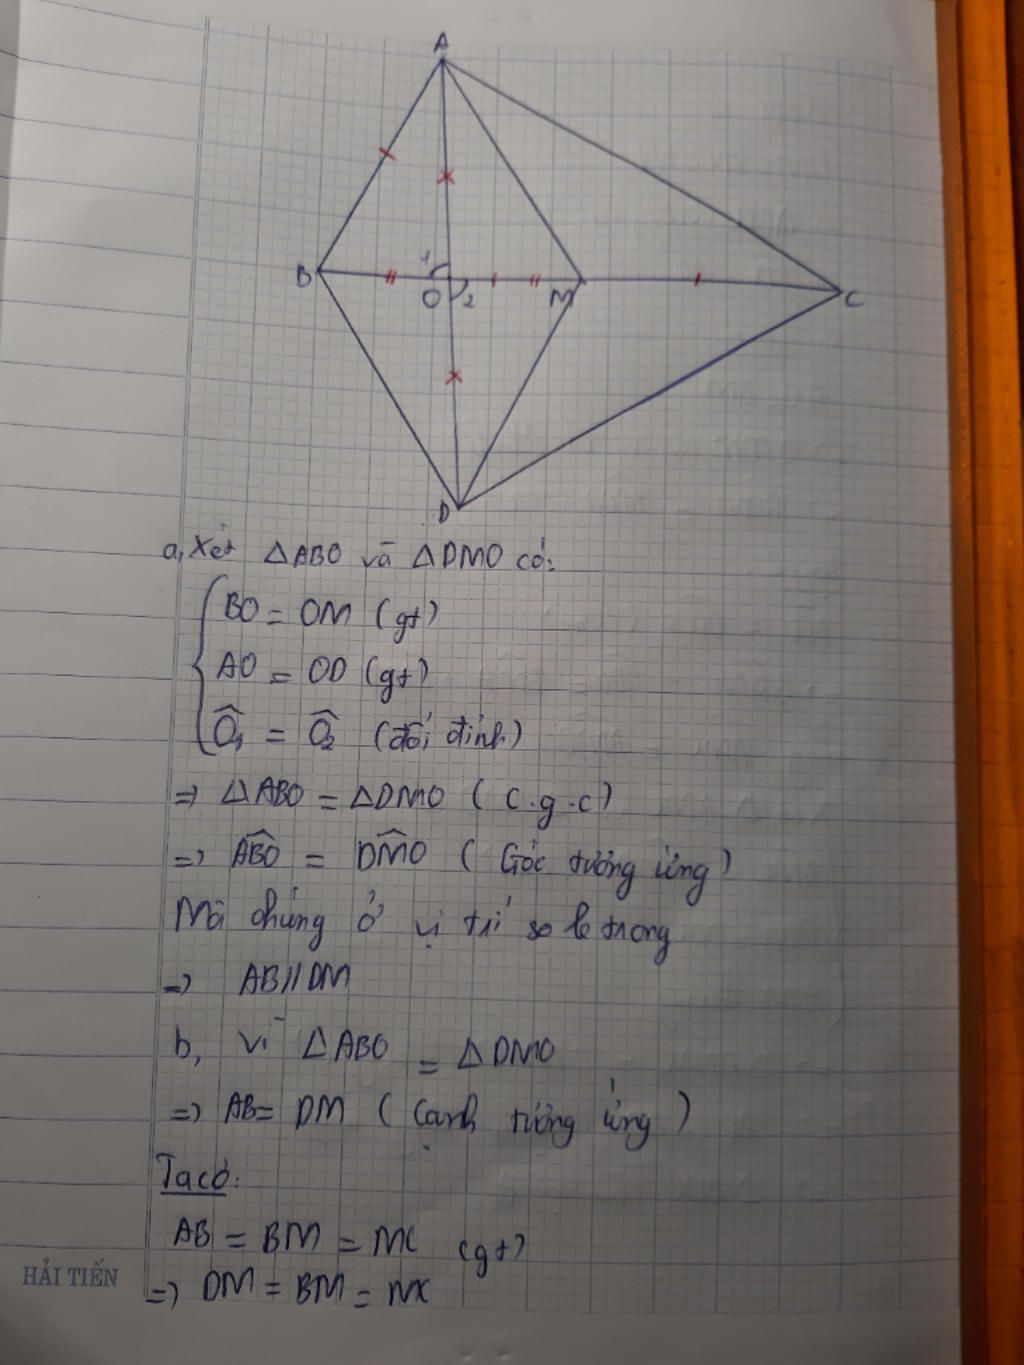 A
B
1
O
2
M
C
D
a, Xét △ABO và △DMO có:
BO = OM (gt)
AO = OD (gt)
Ô₁ = Ô₂ (đối đỉnh)
=> △ABO = △DMO (c.g.c)
=> \widehat{ABO} = \widehat{DMO} (Góc tương ứng)
Mà chúng ở vị trí so le trong
=> AB//DM
b, Vì △ABO = △DMO
=> AB = DM (Cạnh tương ứng)
Ta có:
AB = BM = MC (gt)
HẢI TIẾN
=> DM = BM = MC